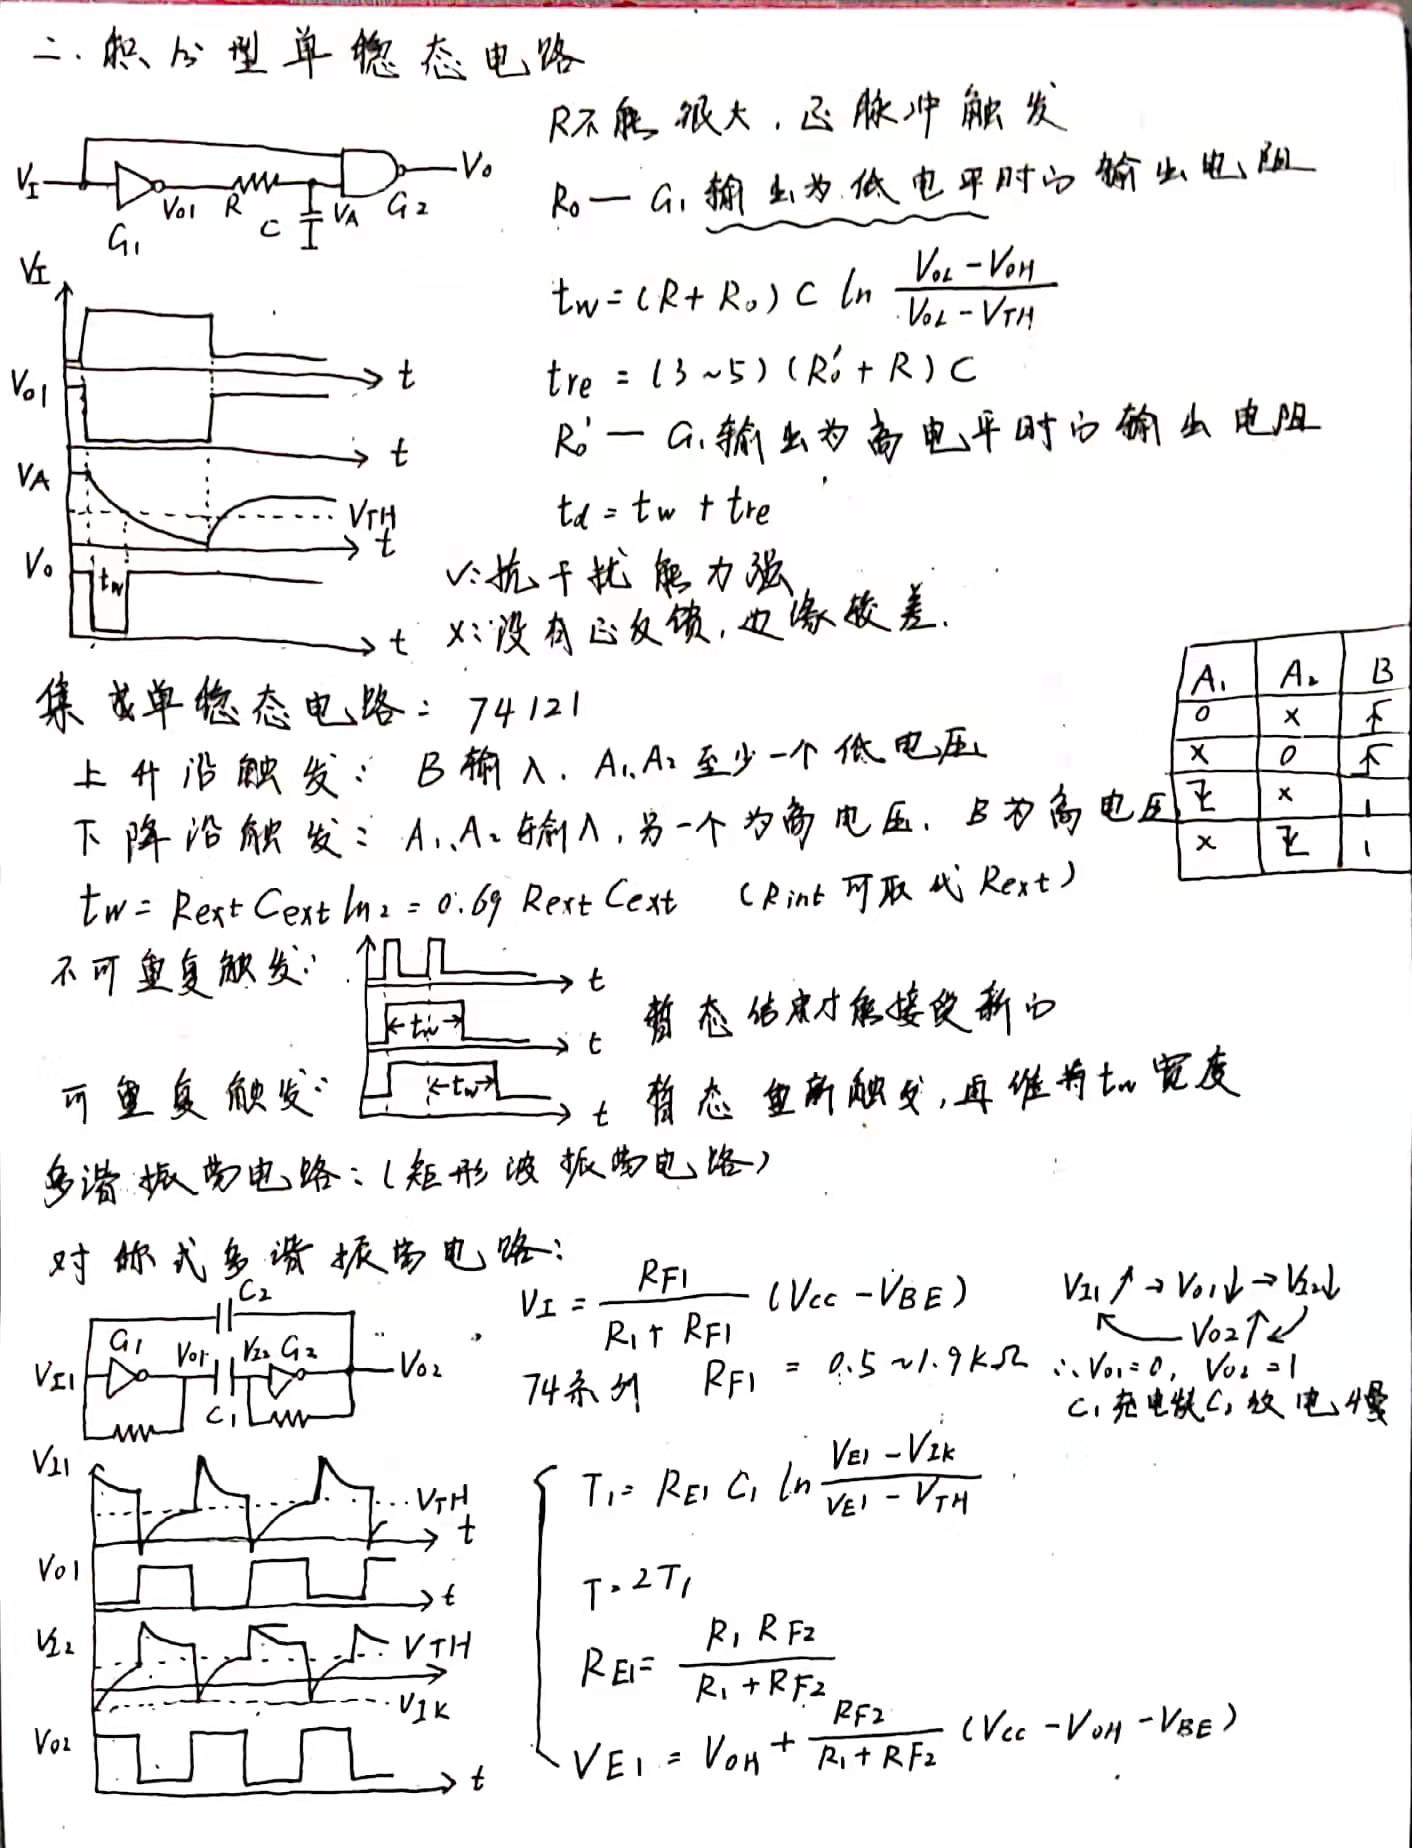 二.积分型单稳态电路
R不能很大,正脉冲触发
VI Vo1 R C VA Vo
G1 G2
Ro — G1输出为低电平时的输出电阻
tw=(R+Ro)C ln (VoL-VoH)/(VoL-VTH)
tre = (3~5)(Ro'+R)C
Ro' — G1输出为高电平时的输出电阻
td = tw + tre
VI t
Vo1 t
VA VTH t
Vo tw t
√:抗干扰能力强
×:没有正反馈,边缘较差.
集成单稳态电路: 74121
上升沿触发: B输入. A1、A2至少一个低电压
下降沿触发: A1、A2输入,另一个为高电压. B为高电压
A1 A2 B
0 × ↑
× 0 ↑
↓ × 1
× ↓ 1
tw = Rext Cext ln2 = 0.69 Rext Cext (Rint可取代Rext)
不可重复触发: t
tw t 暂态结束才能接受新的
可重复触发: tw t 暂态重新触发,再维持tw宽度
多谐振荡电路:(矩形波振荡电路)
对称式多谐振荡电路:
C2
G1 Vo1 VI2 G2
VI1 Vo2
C1
VI = RF1/(R1+RF1) (Vcc-VBE)
74系列 RF1 = 0.5~1.9KΩ
VI1↑→Vo1↓→VI2↓
Vo2↑
∴Vo1=0, Vo2=1
C1充电快C2放电慢
VI1 VTH t
Vo1 t
VI2 VTH
VIK
Vo2 t
T1= RE1 C1 ln (VE1-VIK)/(VE1-VTH)
T=2T1
RE1= R1RF2/(R1+RF2)
VE1 = VoH + RF2/(R1+RF2) (Vcc-VoH-VBE)